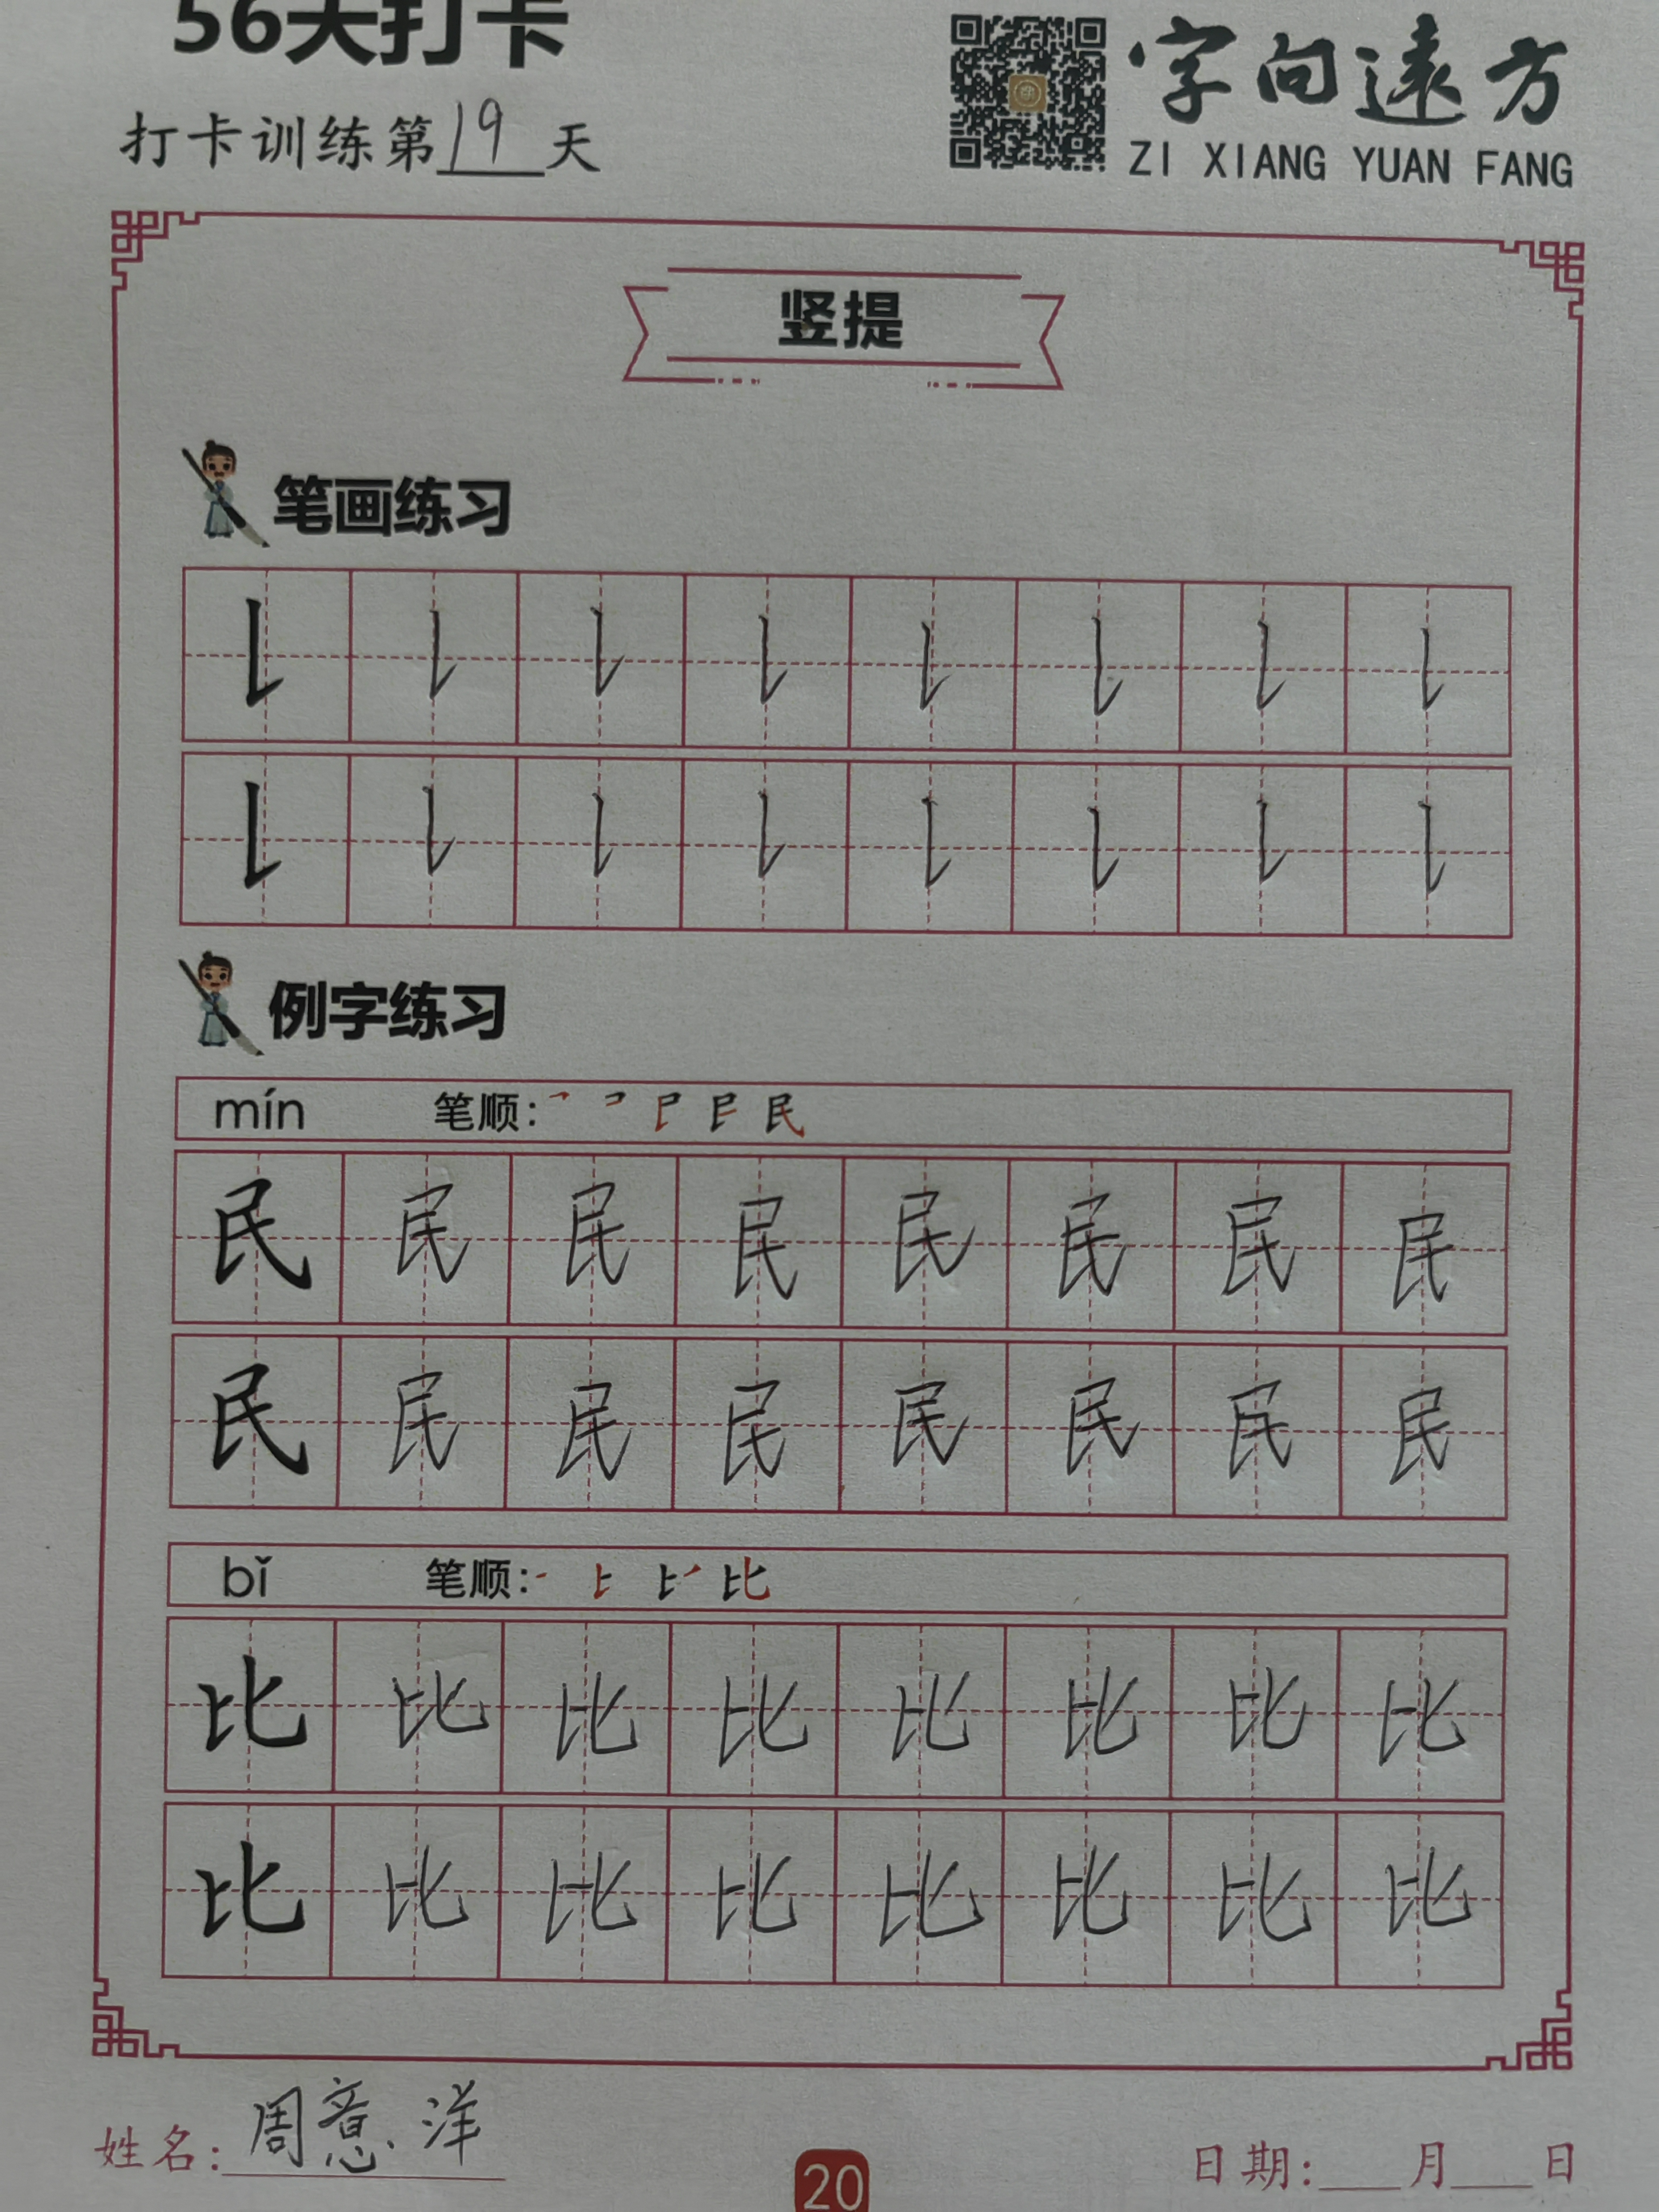 56天打卡
打卡训练第19天
字向遠方
ZI XIANG YUAN FANG
竖提
笔画练习
例字练习
mín 笔顺:
民 民 民 民 民 民 民 民
民 民 民 民 民 民 民 民
bǐ 笔顺:
比 比 比 比 比 比 比 比
比 比 比 比 比 比 比 比
姓名: 周意洋
20
日期: 月 日